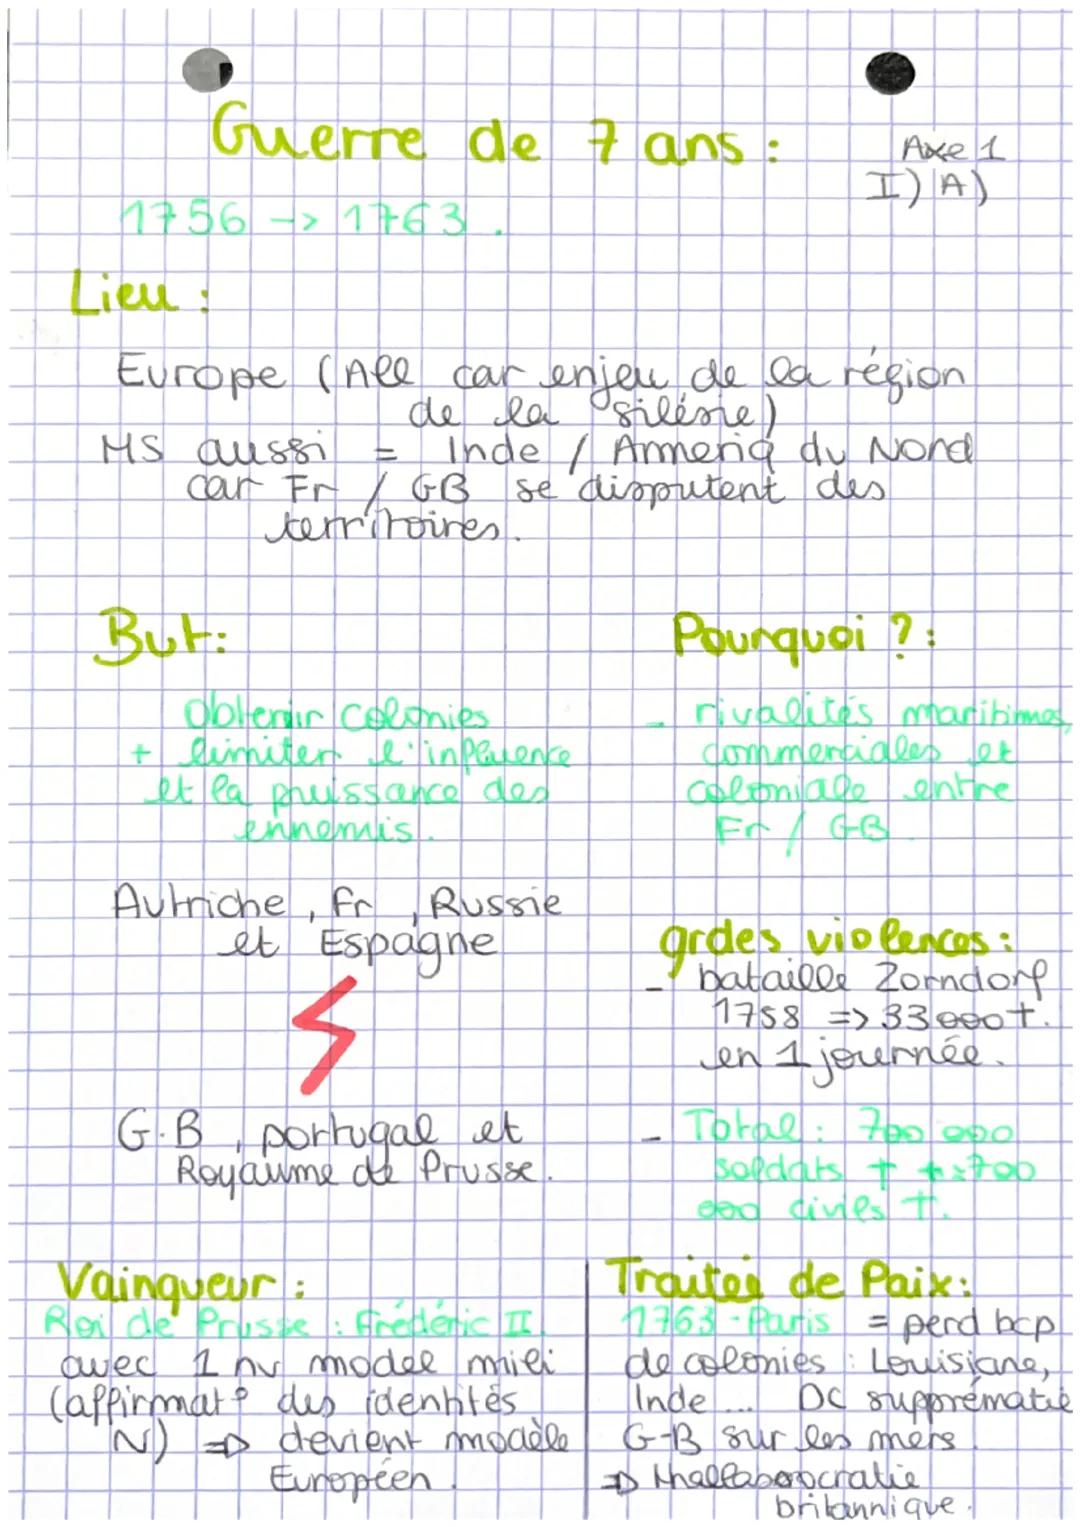 Guerre de 7 ans :
Axe 1
I) A)
1756 -> 1763.
Lieu :
Europe (All car enjeu de la région
de la silésie)
MS aussi = Inde / Ameriq du Nord
car Fr / GB se disputent des
territoires.
But:
obtenir colonies
+ limiter l'influence
et la puissance des
ennemis.
Pourquoi ? :
- rivalités maritimes,
commerciales et
coloniale entre
Fr / GB
Autriche, Fr, Russie
et Espagne
G.B, portugal et
Royaume de Prusse.
grdes violences :
- bataille Zorndorf
1758 => 33 000 †.
en 1 journée.
- Total : 700 000
soldats † + 700
000 civils †.
Vainqueur :
Roi de Prusse : Frédéric II
avec 1 nv model mili
(affirmat° des identités
N) => devient modèle
Européen.
Traités de Paix :
1763 - Paris = perd bcp
de colonies : Louisiane,
Inde ... DC supprématie
G-B sur les mers
=> thallasocratie
britannique.